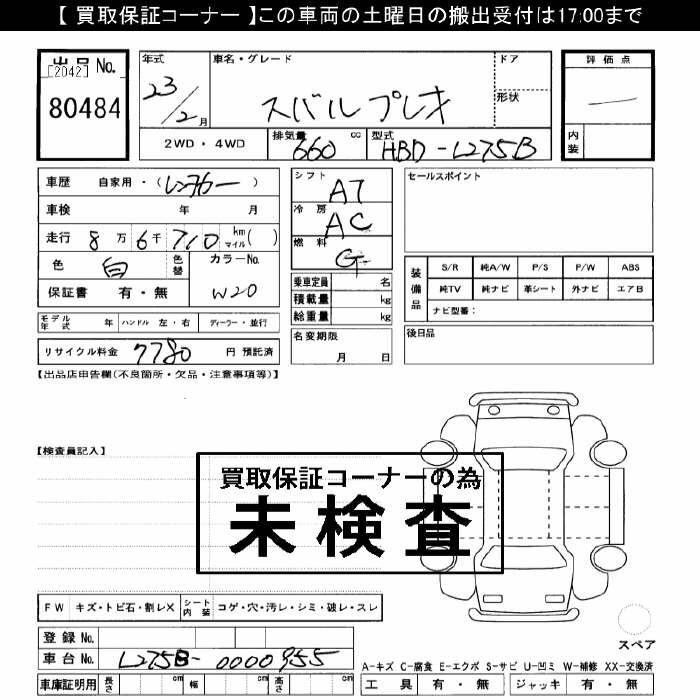 【 買取保証コーナー 】この車両の土曜日の搬出受付は17:00まで
出品 No.
[2042]
80484
年式
23/2月
車名・グレード
スバルプレオ
ドア
形状
評価点
内装
2WD・4WD
排気量
660
cc
型式
HBD-L275B
車歴 自家用・(レンタカー)
車検 年 月
走行 8万 6千 710 km マイル( )
色 白
色替
カラーNo.
W20
保証書 有・無
シフト
AT
冷房
AC
燃料
G
乗車定員 名
積載量 kg
総重量 kg
名変期限
月 日
セールスポイント
装備品
S/R 純A/W P/S P/W ABS
純TV 純ナビ 革シート 外ナビ エアB
ナビ型番:
後日品
モデル年式 年 ハンドル 左・右 ディーラー・並行
リサイクル料金 7780 円 預託済
【出品店申告欄(不良箇所・欠品・注意事項等)】
【検査員記入】
買取保証コーナーの為
未検査
FW キズ・トビ石・割レX シート内装 コゲ・穴・汚レ・シミ・破レ・スレ
登録 No.
車台 No. L275B-0000955
車庫証明用 長さ cm 幅 cm 高さ cm
スペア
A-キズ C-腐食 E-エクボ S-サビ U-凹ミ W-補修 XX-交換済
工具 有・無 ジャッキ 有・無